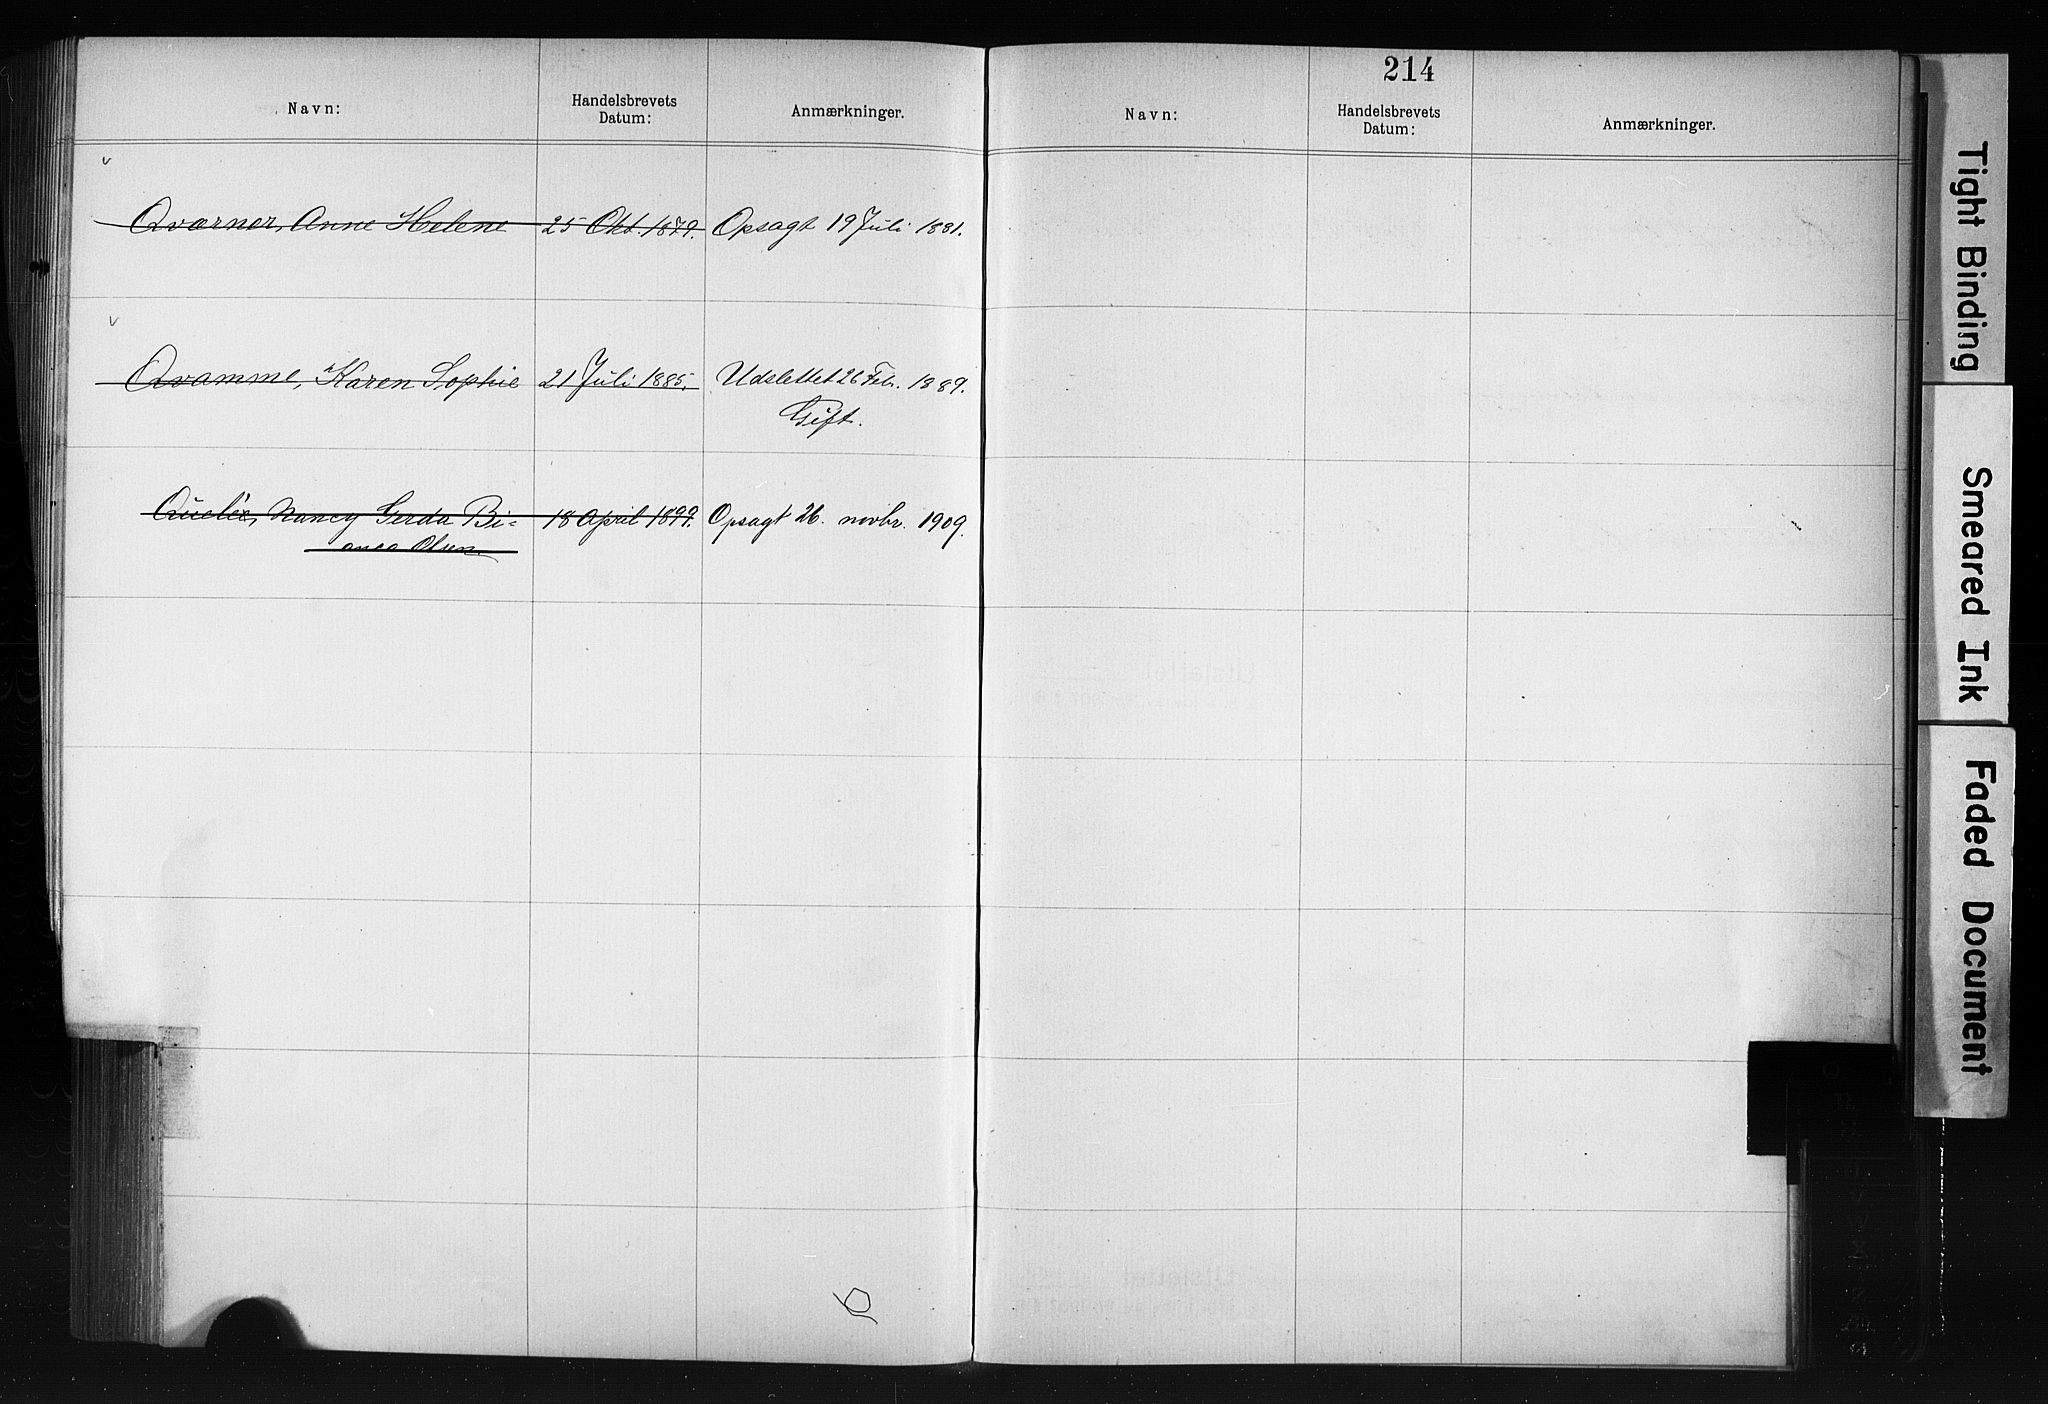 Navn: Handelsbrevets Datum: Anmærkninger.
Qværner, Anne Helene 25 Okt. 1879. Opsagt 19 Juli 1881.
Qvamme, Karen Sophie 21 Juli 1885. Udslettet 26 Feb. 1889.
Gift.
Nancy Gerda Bi- 18 April 1899. Opsagt 26. novbr. 1909.
anca Olsen.
214
Navn: Handelsbrevets Datum: Anmærkninger.
Tight Binding
Smeared Ink
Faded Document